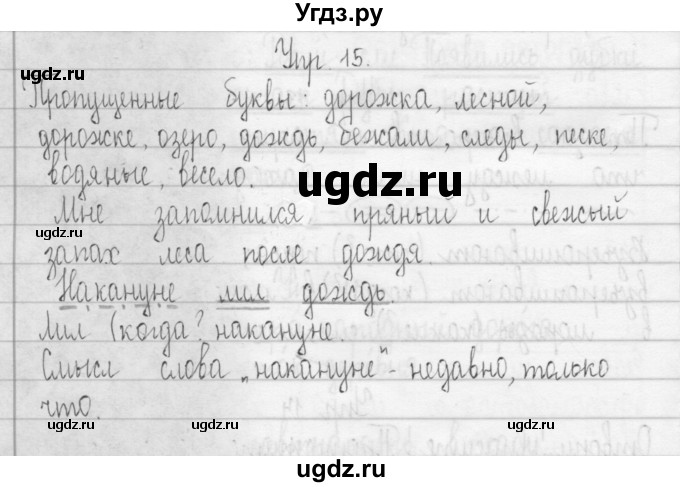 Угдз.ру
Упр. 15.
ugdz.ru ugdz.ru
Пропущенные буквы: дорожка, лесной,
дорожке, озеро, дождь, бежали, следы, песке,
водяные, весело.
ugdz.ru
Мне запомнился пряный и свежый
запах леса после дождя.
Накануне лил дождь.
Лил (когда? накануне.
Смысл слова „накануне" - недавно, только
что.
ugdz.ru ugdz.ru ugdz.ru
ugdz.ru